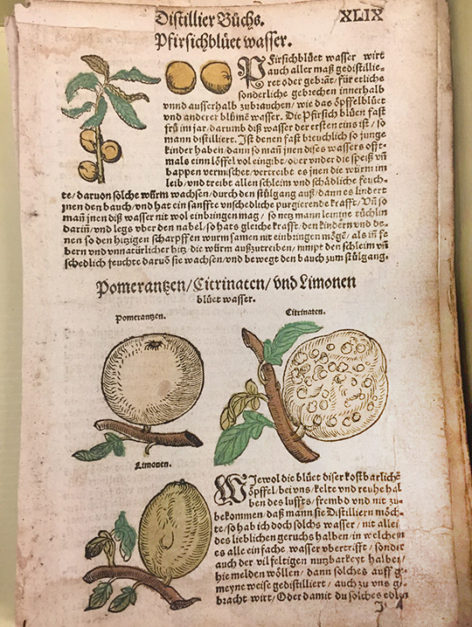 Distillier Bůchs. XLIX
Pfirsichblüet wasser.
PFirsichblüet wasser wirt
auch aller maß gedistillie-
ret oder gebrañt/ für etliche
sonderliche gebrechen innerhalb
vnnd ausserhalb zubrauchen/ wie das öpffelblüet
vnd anderer blůmē wasser. Die Pfirsich blüen fast
frů im jar/ darumb diß wasser der ersten eins ist/ so
mann distilliert. Ist denen fast breuchlich so junge
kinder haben/ dann so mañ jnen dises wassers offt-
mals einn löffel vol eingibt/ oder vnder die speiß vñ
bappen vermischet/ vertreibt es jnen die würm im
leib/ vnd treibt allen schleim vnd schädliche feuch-
te/ daruon solche würm wachsen/ durch den stülgang auß/ dann es lindert
jnen den bauch/ vnd hat ein sanffte vnschedliche purgierende krafft/ Vñ so
mañ jnen diß wasser nit wol einbringen mag/ so netz mann leinine tüchlin
dariñ/ vnd legs vber den nabel/ so hats gleiche krafft/ den kindern vnd de-
nen so den hitzigen scharpffen wurmsamen nit einbringen mögē/ als iñ fe-
bern vnd vnnatürlicher hitz die würm außzutreiben/ nimpt den schleim vñ
schedlich feuchte daruō sie wachsen/ vnd bewegt den bauch zum stülgang.
Pomerantzen/ Citrinaten/ vnd Limonen
blüet wasser.
Pomerantzen.
Citrinaten.
Limonen.
WJewol die blüet diser kostbarlichē
öpffel/ bei vns/ kelte vnd reuhe hal
ben des luffts/ frembd vnd nit zu-
bekommen/ daß mann sie Distillieren möch-
te/ so hab ich doch solchs wasser/ mit allei
des lieblichen geruchs halben/ in welchem
es alle einfache wasser vbertrifft/ sonder
auch der vilfeltigen nutzbarkeyt halber/
hie melden wöllen/ dann solches auff g
meyne weise gedistilliert/ auch zu vns ge
bracht wirt/ Oder damit du solches edlen